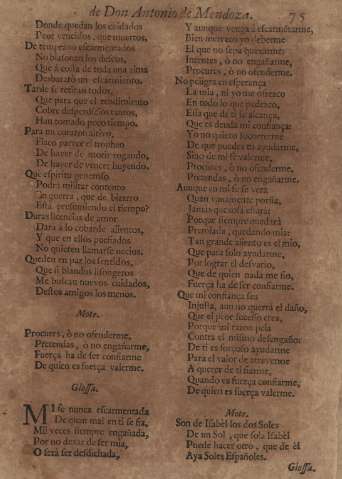 de Don Antonio de Mendoza. 75
Donde quedan los cuidados
Peor vencidos, que muertos.
De temprano escarmentados
No blasonan los deseos,
Que à costa de toda una alma
Desbaratò un escarmiento.
Tarde se retiran todos,
Que para que el rendimiento
Cobre despensados tantos,
Han tomado poco tiempo.
Para un corazon altivo,
Flaco parece el tropheo
De haver de morir rogando,
De haver de vencer huyendo.
Que espiritu generoso
Podrà militar contento
En guerra, que de bizarro
Està presumiendo el tiempo?
Duras licencias de amor
Dara à lo cobarde alientos,
Y que en ellos puestados
No quieren llamarse necios.
Queden en paz los sentidos,
Que si blandos lisongeros
Me buscan nuevos cuidados,
Destos amigos los menos.
Mote.
Procures, ò no ofenderme,
Pretendas, ò no engañarme,
Fuerça ha de ser confiarme
De quien es fuerça valerme.
Glossa.
MI fe nunca escarmentada
De quan mal en ti se fia,
Mil veces siempre engañada,
Por no dexar de ser mia,
O serà ser desdichada,
Y aunque venga à escarmentarme,
Bien merezco yo deberme
El que no sepa quexarme:
Intentes, ò no engañarme,
Procures, ò no ofenderme.
No peligra en esperança
La mia, ni yo me ofrezco
En todo lo que padezco,
Ella que de ti se alcança,
Que es deuda mi confiança:
Yo no quiero socorrerme
De que puedes tu ayudarme,
Sino de mi fe valerme,
Procures, ò no ofenderme,
Pretendas, ò no engañarme.
Aunque en mi fe se verà
Quan vanamente porfia,
Jamàs quexosa estarà:
Porque siempre morirà
Premiada, quedando mia:
Tan grande aliento es el mio,
Que para solo ayudarme,
Por lograr el desvario,
Que de quien nada me fio,
Fuerça ha de ser confiarme.
Que mi confiança sea
Injusta, aun no querrà el daño,
Que el peor sucesso crea,
Porque mi razon pelea
Contra el mismo desengaño:
De ti es forçoso ayudarme
Para el valor de atreverme
A querer de ti fiarme,
Quando es fuerça confiarme,
De quien es fuerça valerme.
Mote.
Son de Isabèl los dos Soles
De un Sol, que sola Isabèl
Puede hacer otro, que de èl
Aya Soles Españoles.
Glossa.